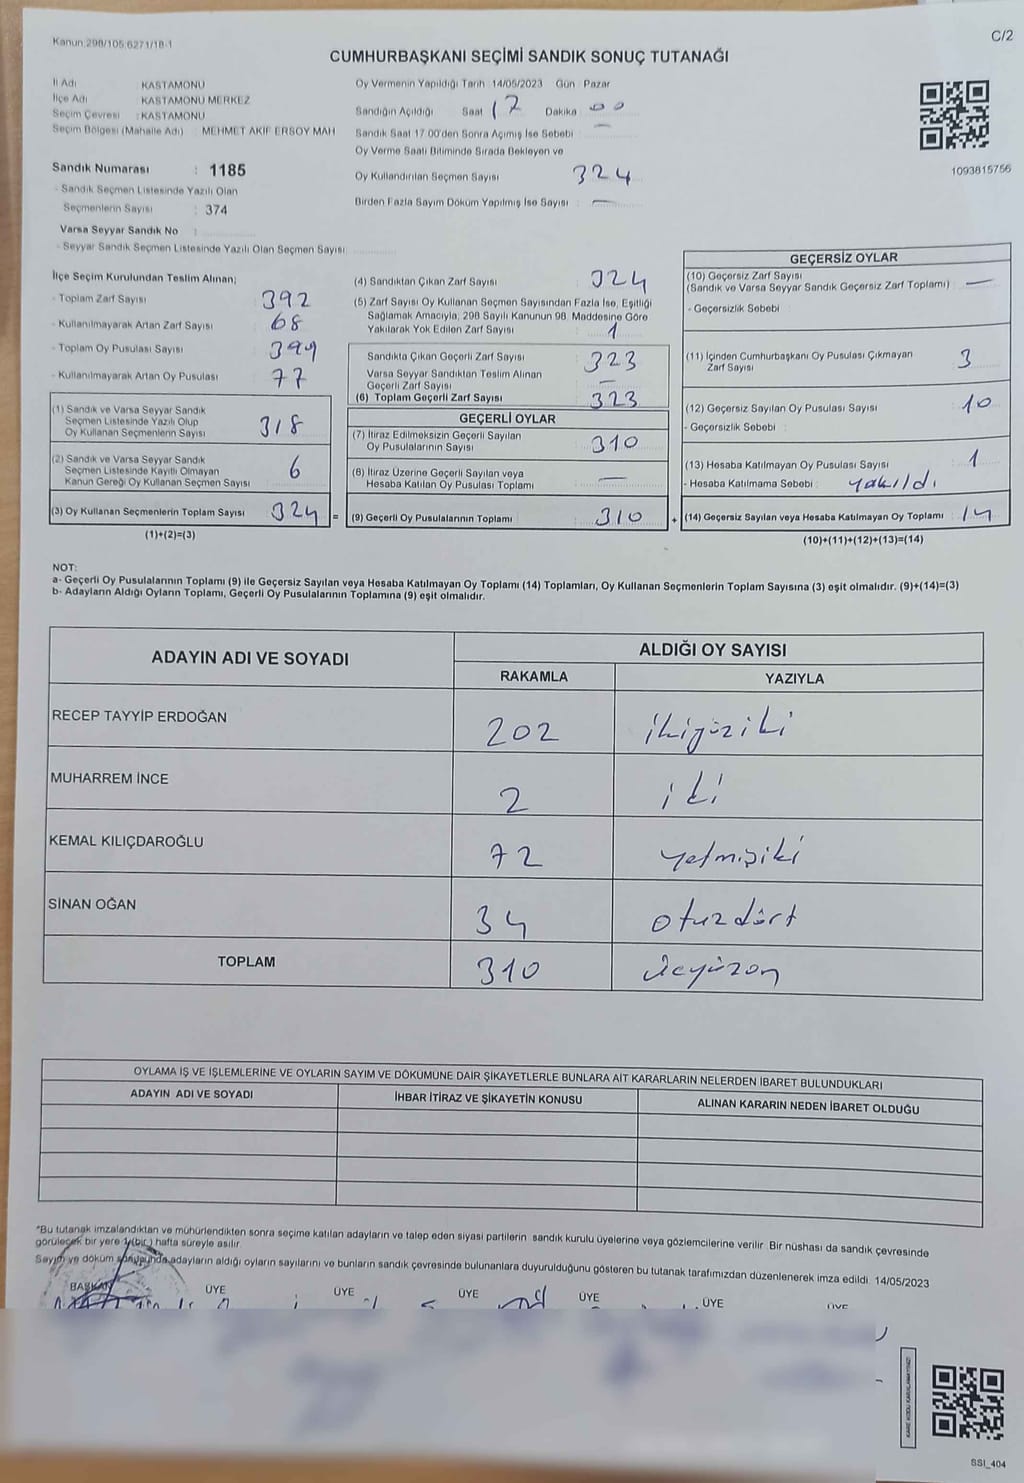 Kanun:298/105,6271/18-1
C/2
CUMHURBAŞKANI SEÇİMİ SANDIK SONUÇ TUTANAĞI
İl Adı : KASTAMONU
İlçe Adı : KASTAMONU MERKEZ
Seçim Çevresi : KASTAMONU
Seçim Bölgesi (Mahalle Adı) : MEHMET AKİF ERSOY MAH
Sandık Numarası : 1185
- Sandık Seçmen Listesinde Yazılı Olan
Seçmenlerin Sayısı : 374
Varsa Seyyar Sandık No :
- Seyyar Sandık Seçmen Listesinde Yazılı Olan Seçmen Sayısı:
Oy Vermenin Yapıldığı Tarih :14/05/2023 Gün : Pazar
Sandığın Açıldığı Saat 17 Dakika 00
Sandık Saat 17:00'den Sonra Açımış İse Sebebi : —
Oy Verme Saati Bitiminde Sırada Bekleyen ve
Oy Kullandırılan Seçmen Sayısı : 324
Birden Fazla Sayım Döküm Yapılmış İse Sayısı : —
1093815756
İlçe Seçim Kurulundan Teslim Alınan;
- Toplam Zarf Sayısı : 392
- Kullanılmayarak Artan Zarf Sayısı : 68
- Toplam Oy Pusulası Sayısı :
- Kullanılmayarak Artan Oy Pusulası : 77
(1) Sandık ve Varsa Seyyar Sandık
Seçmen Listesinde Yazılı Olup
Oy Kullanan Seçmenlerin Sayısı : 318
(2) Sandık ve Varsa Seyyar Sandık
Seçmen Listesinde Kayıtlı Olmayan
Kanun Gereği Oy Kullanan Seçmen Sayısı : 6
(3) Oy Kullanan Seçmenlerin Toplam Sayısı : 324 =
(1)+(2)=(3)
(4) Sandıktan Çıkan Zarf Sayısı : 324
(5) Zarf Sayısı Oy Kullanan Seçmen Sayısından Fazla İse, Eşitliği
Sağlamak Amacıyla, 298 Sayılı Kanunun 98. Maddesine Göre
Yakılarak Yok Edilen Zarf Sayısı : 1
Sandıkta Çıkan Geçerli Zarf Sayısı : 323
Varsa Seyyar Sandıktan Teslim Alınan
Geçerli Zarf Sayısı : —
(6) Toplam Geçerli Zarf Sayısı : 323
GEÇERLİ OYLAR
(7) İtiraz Edilmeksizin Geçerli Sayılan
Oy Pusulalarının Sayısı : 310
(8) İtiraz Üzerine Geçerli Sayılan veya
Hesaba Katılan Oy Pusulası Toplamı : —
(9) Geçerli Oy Pusulalarının Toplamı : 310 +
GEÇERSİZ OYLAR
(10) Geçersiz Zarf Sayısı
(Sandık ve Varsa Seyyar Sandık Geçersiz Zarf Toplamı) : —
- Geçersizlik Sebebi :
(11) İçinden Cumhurbaşkanı Oy Pusulası Çıkmayan
Zarf Sayısı : 3
(12) Geçersiz Sayılan Oy Pusulası Sayısı : 10
- Geçersizlik Sebebi :
(13) Hesaba Katılmayan Oy Pusulası Sayısı : 1
- Hesaba Katılmama Sebebi : yakıldı
(14) Geçersiz Sayılan veya Hesaba Katılmayan Oy Toplamı : 14
(10)+(11)+(12)+(13)=(14)
NOT:
a- Geçerli Oy Pusulalarının Toplamı (9) ile Geçersiz Sayılan veya Hesaba Katılmayan Oy Toplamı (14) Toplamları, Oy Kullanan Seçmenlerin Toplam Sayısına (3) eşit olmalıdır. (9)+(14)=(3)
b- Adayların Aldığı Oyların Toplamı, Geçerli Oy Pusulalarının Toplamına (9) eşit olmalıdır.
ADAYIN ADI VE SOYADI
ALDIĞI OY SAYISI
RAKAMLA YAZIYLA
RECEP TAYYİP ERDOĞAN 202 ikiyüziki
MUHARREM İNCE 2 iki
KEMAL KILIÇDAROĞLU 72 yetmişiki
SİNAN OĞAN 34 otuzdört
TOPLAM 310 üçyüzon
OYLAMA İŞ VE İŞLEMLERİNE VE OYLARIN SAYIM VE DÖKÜMÜNE DAİR ŞİKAYETLERLE BUNLARA AİT KARARLARIN NELERDEN İBARET BULUNDUKLARI
ADAYIN ADI VE SOYADI İHBAR İTİRAZ VE ŞİKAYETİN KONUSU ALINAN KARARIN NEDEN İBARET OLDUĞU
*Bu tutanak imzalandıktan ve mühürlendikten sonra seçime katılan adayların ve talep eden siyasi partilerin sandık kurulu üyelerine veya gözlemcilerine verilir. Bir nüshası da sandık çevresinde
görülecek bir yere 1 (bir ) hafta süreyle asılır.
Sayım ve döküm sonucunda adayların aldığı oyların sayılarını ve bunların sandık çevresinde bulunanlara duyurulduğunu gösteren bu tutanak tarafımızdan düzenlenerek imza edildi. 14/05/2023
BAŞKAN ÜYE ÜYE ÜYE ÜYE ÜYE ÜYE
KARE KODU KARALAMAYINIZ!
SSI_404